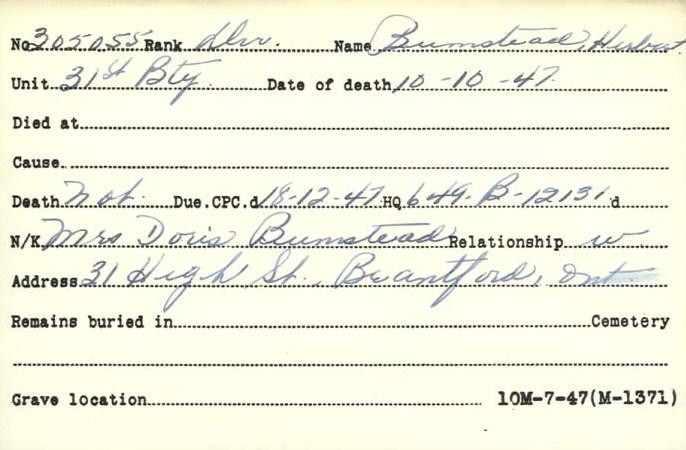 No 305055 Rank Dvr. Name Bumstead, Herbert
Unit 31st Bty. Date of death 10-10-47
Died at
Cause.
Death Not. Due.CPC.d 18-12-47 HQ 649-B-12131 d
N/K Mrs Doris Bumstead Relationship w
Address 31 High St., Brantford, Ont
Remains buried in Cemetery
Grave location 10M-7-47(M-1371)